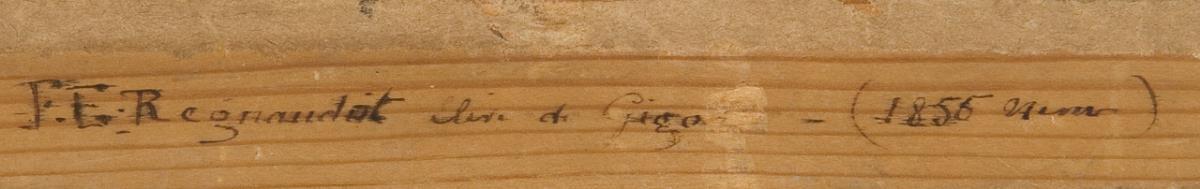 F.E. Regnaudot élève de Gigo – (1856